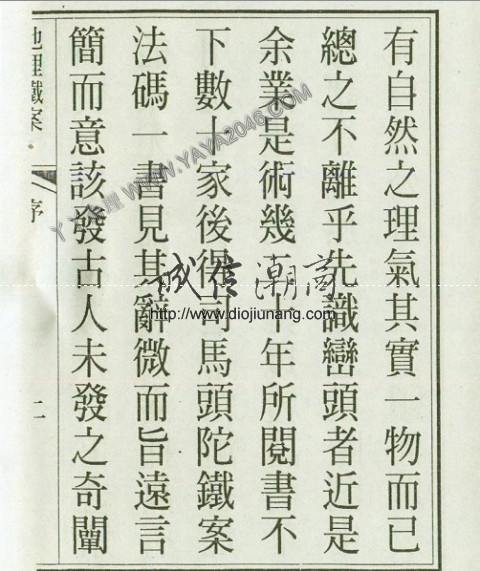 有自然之理氣其實一物而已
總之不離乎先識巒頭者近是
余業是術幾十年所閱書不
下數十家後得司馬頭陀鐵案
法碼一書見其辭微而旨遠言
簡而意該發古人未發之奇闡
地理鐵案
序
二
WWW.YAYA2046.COM
http://www.diojiunang.com